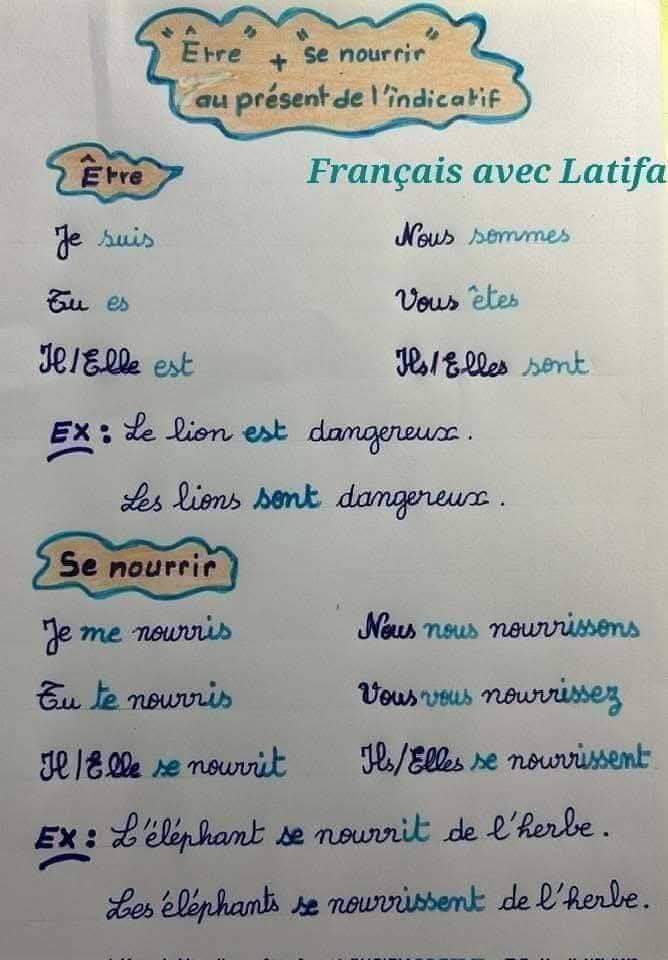 "Être" + "se nourrir"
au présent de l'indicatif
Français avec Latifa
Être
Je suis
Nous sommes
Tu es
Vous êtes
Il/Elle est
Ils/Elles sont
Ex: Le lion est dangereux.
Les lions sont dangereux.
Se nourrir
Je me nourris
Nous nous nourrissons
Tu te nourris
Vous vous nourrissez
Il/Elle se nourrit
Ils/Elles se nourrissent
Ex: L'éléphant se nourrit de l'herbe.
Les éléphants se nourrissent de l'herbe.